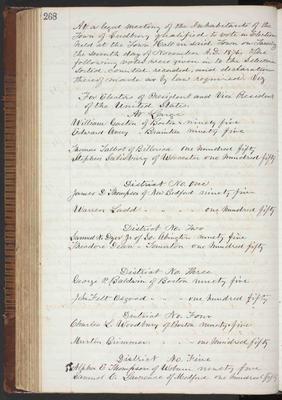 268
At a legal meeting of the Inhabitants of the
Town of Sudbury qualified to vote in Election
held at the Town Hall in said Town on Tuesday
the seventh day of November A.D. 1876. The
following votes were given in to the Selectmen
Sorted, Counted recorded, and declaration
thereof made as by law required Viz
For Electors of President and Vice President
of the United States.
At Large
William Gaston of Boston ninety five
Edward Avery Braintree ninety five
Thomas Talbot of Billerica one hundred fifty
Stephen Salisbury of Worcester one hundred fifty
District No. One
James D. Thompson of New Bedford ninety five
Warren Ladd one hundred fifty
District No. Two
Samuel N. Dyer Jr of So. Abington ninety five
Theodore Dean Taunton one hundred fifty
District No. Three
George P. Baldwin of Boston ninety five
John Felt Osgood one hundred fifty
District No. Four
Charles L. Woodbury of Boston ninety five
Martin Brimmer one hundred fifty
District No. Five
Alpha E. Thompson of Woburn ninety five
Samuel C. Lawrence of Medford one hundred fifty